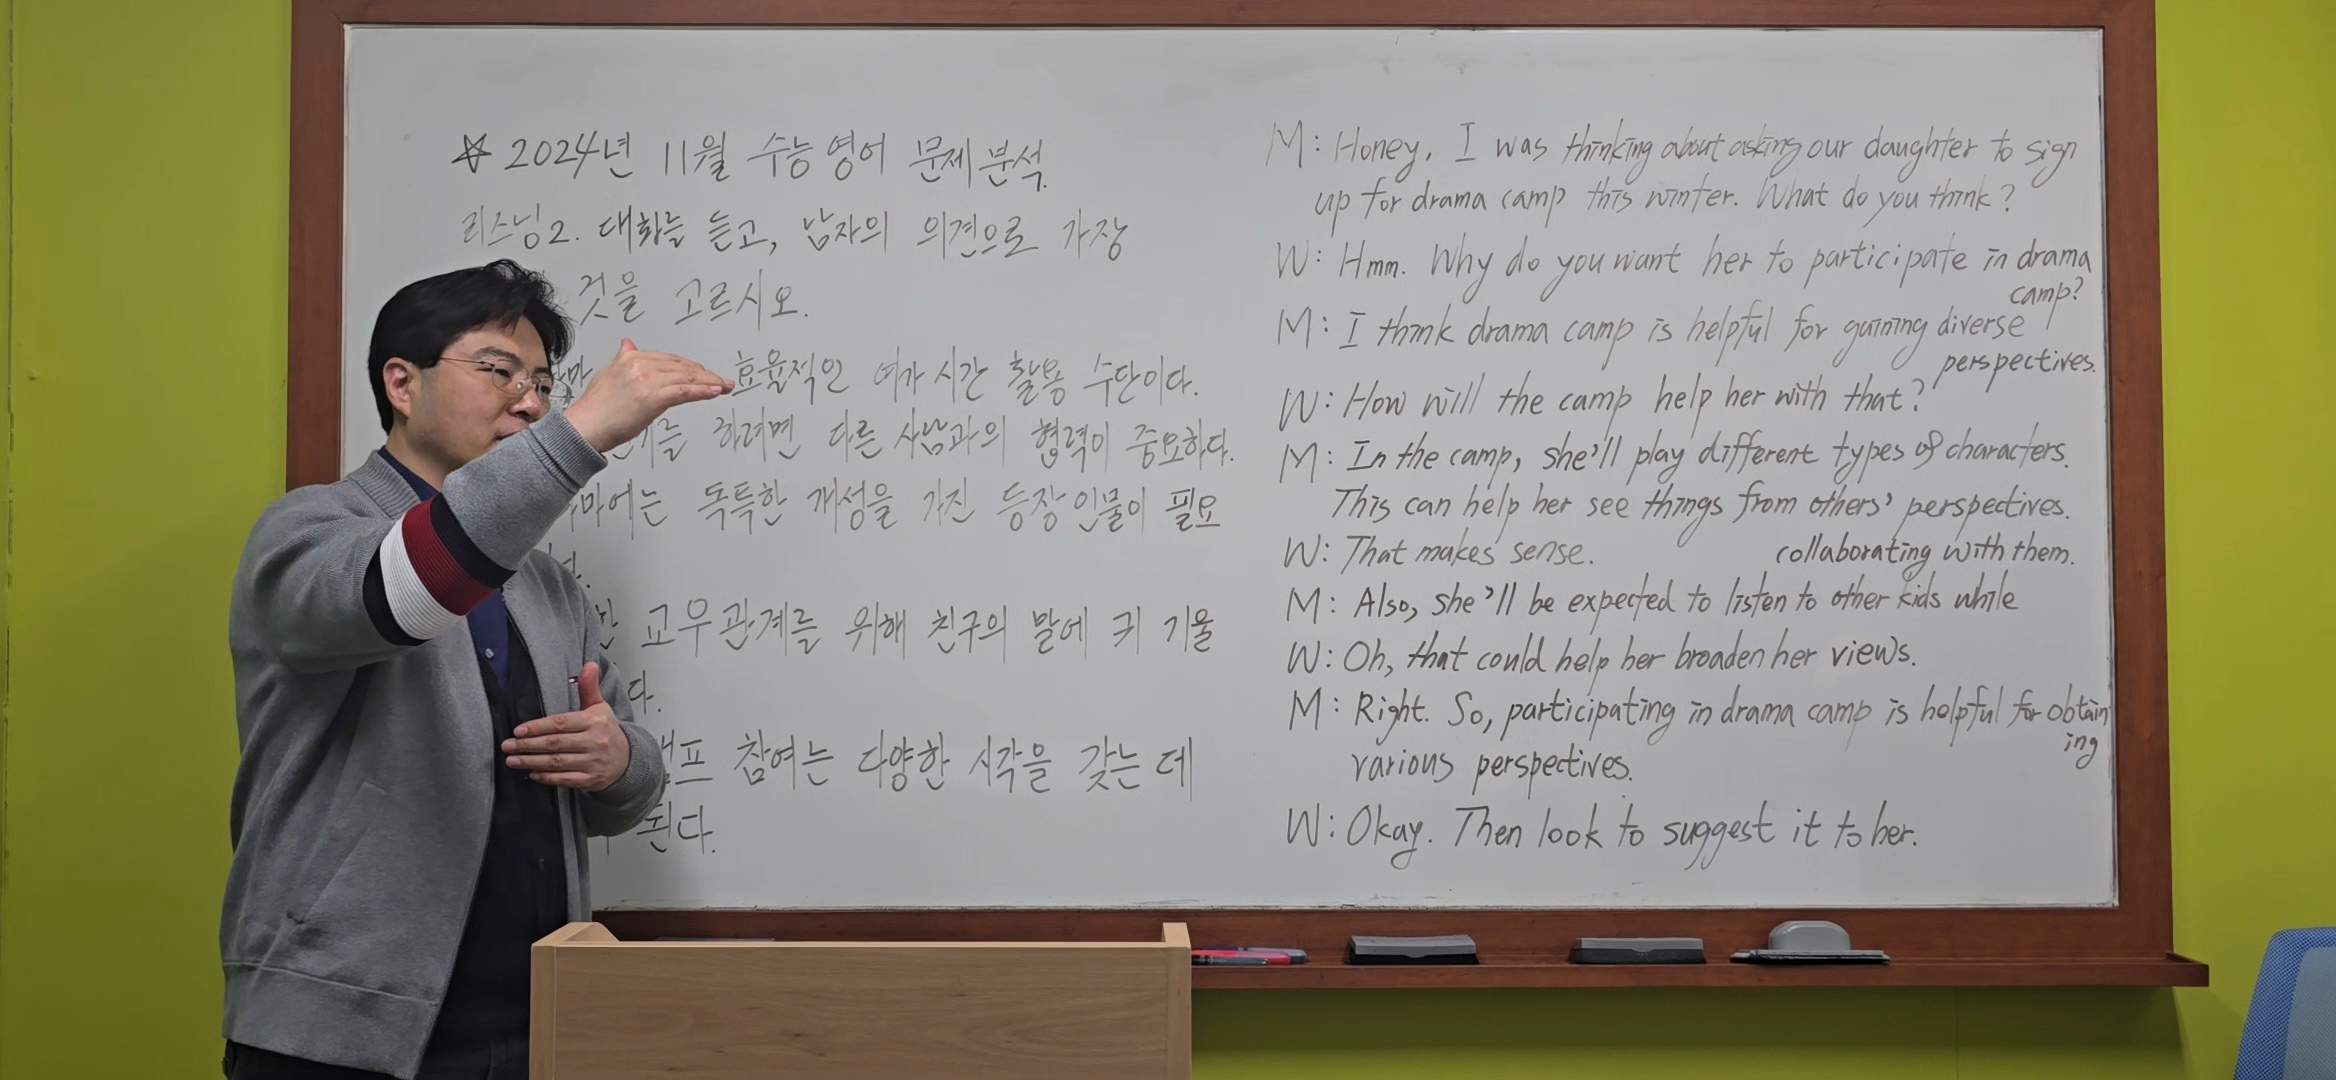 ☆ 2024년 11월 수능 영어 문제 분석.
리스닝 2. 대화를 듣고, 남자의 의견으로 가장
것을 고르시오.
효율적인 여가 시간 활용 수단이다.
를 하려면 다른 사람과의 협력이 중요하다.
마에는 독특한 개성을 가진 등장인물이 필요
다.
교우관계를 위해 친구의 말에 귀 기울
다.
캠프 참여는 다양한 시각을 갖는 데
된다.
M: Honey, I was thinking about asking our daughter to sign
up for drama camp this winter. What do you think?
W: Hmm. Why do you want her to participate in drama
camp?
M: I think drama camp is helpful for gaining diverse
perspectives.
W: How will the camp help her with that?
M: In the camp, she'll play different types of characters.
This can help her see things from others' perspectives.
W: That makes sense.
collaborating with them.
M: Also, she'll be expected to listen to other kids while
W: Oh, that could help her broaden her views.
M: Right. So, participating in drama camp is helpful for obtain
ing
various perspectives.
W: Okay. Then look to suggest it to her.